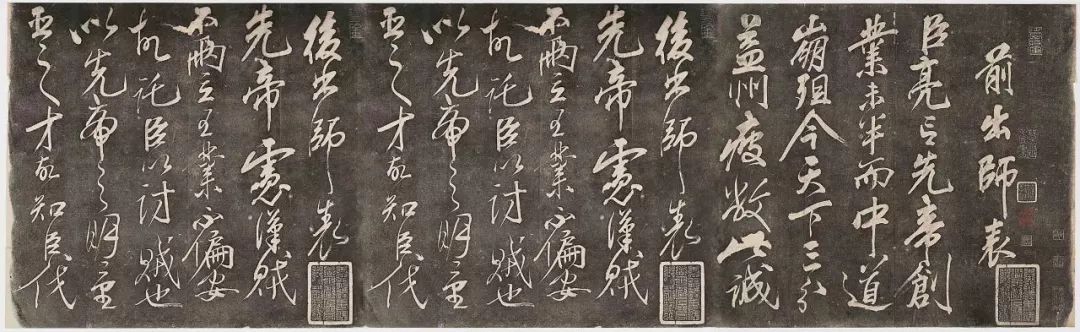 前出師表
臣亮言先帝創
業未半而中道
崩殂今天下三分
益州疲敝此誠
後出師表
先帝慮漢賊
不兩立王業不偏安
故託臣以討賊也
以先帝之明量
臣之才故知臣伐
後出師表
先帝慮漢賊
不兩立王業不偏安
故託臣以討賊也
以先帝之明量
臣之才故知臣伐